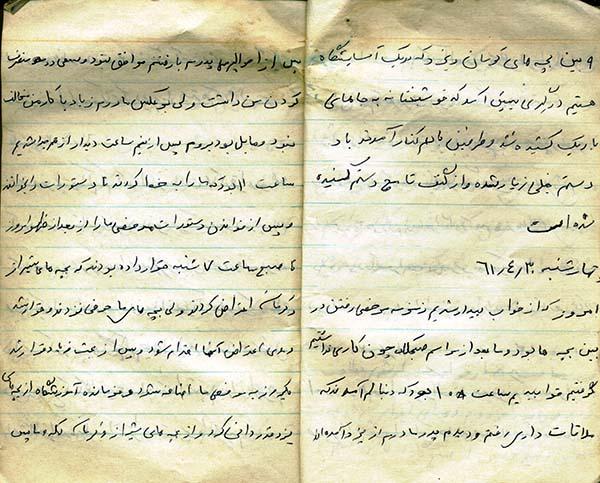 و بین بچه های کرمان و یزد که در یک آسایشگاه
هستیم درگیری پیش آمد که خوشبختانه به جاهای
باریک کشیده نشد و طرفین با هم کنار آمدند باد
دستم خیلی زیاد شده و از کتف تا مچ دستم کشیده
شده است
چهارشنبه ۶۱/۴/۳۰
امروز که از خواب بیدار شدیم زمزمه مرخصی رفتن در
بین بچه ها بود و ما بعد از مراسم صبحگاه چون کاری نداشتیم
گرفتیم خوابیدیم ساعت ۱۰ بود که دنبالم آمدند که
ملاقات داری رفتم و دیدم پدر مادرم از یزد آمده‌اند
پس از احوالپرسی پدرم با رفتنم موافق نبود و سعی در منصرف
کردن من داشت ولی برعکس مادرم زیاد با کار من مخالف
نبود و مایل بود بروم پس از نیم ساعت دیدار از هم جدا شدیم
ساعت ۱۱ بود که ما را به خط کردند تا دستورات را بخوانند
و پس از خواندن دستورات مرخصی ما را از بعد از ظهر امروز
تا صبح ساعت ۷ شنبه قرار داده بودند که بچه های شیراز
و کرمان اعتراض کردند ولی بچه های ما حرفی نزدند و قرار شد
اعتراض آنها اعلام شود و پس از بحث زیاد قرار شد
یکروز به مرخصی ما اضافه شود و فرمانده آموزشگاه از بچه های
یزد قدردانی کرد و از بچه های شیراز و کرمان گله و ما پس